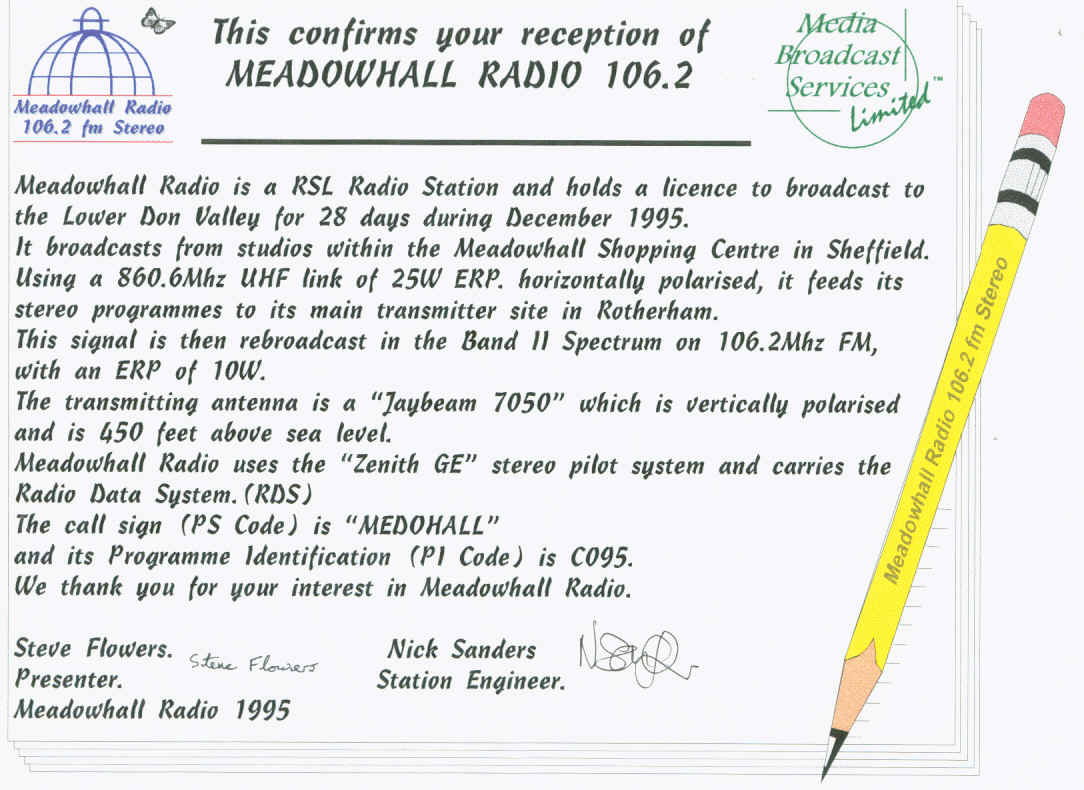 This confirms your reception of
MEADOWHALL RADIO 106.2
Meadowhall Radio
106.2 fm Stereo
Media
Broadcast
Services
Limited™
Meadowhall Radio is a RSL Radio Station and holds a licence to broadcast to
the Lower Don Valley for 28 days during December 1995.
It broadcasts from studios within the Meadowhall Shopping Centre in Sheffield.
Using a 860.6Mhz UHF link of 25W ERP. horizontally polarised, it feeds its
stereo programmes to its main transmitter site in Rotherham.
This signal is then rebroadcast in the Band II Spectrum on 106.2Mhz FM,
with an ERP of 10W.
The transmitting antenna is a “Jaybeam 7050” which is vertically polarised
and is 450 feet above sea level.
Meadowhall Radio uses the “Zenith GE” stereo pilot system and carries the
Radio Data System.(RDS)
The call sign (PS Code) is “MEDOHALL”
and its Programme Identification (PI Code) is C095.
We thank you for your interest in Meadowhall Radio.
Steve Flowers. Steve Flowers
Presenter.
Meadowhall Radio 1995
Nick Sanders
Station Engineer.
Meadowhall Radio 106.2 fm Stereo